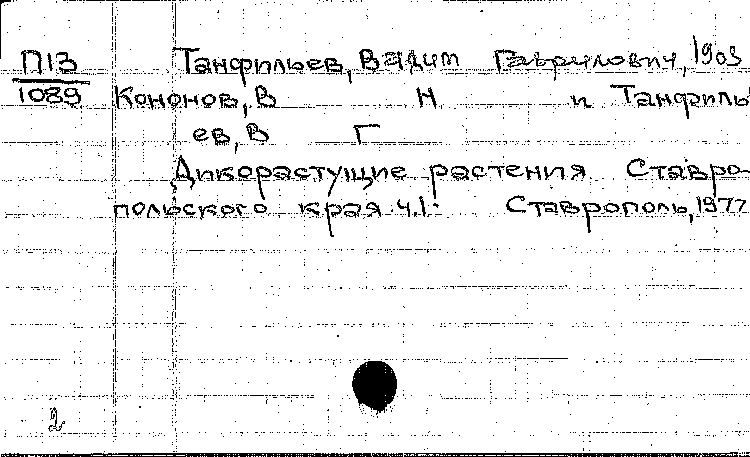 П13 Танфильев, Вадим Гаврилович, 1903
1089 Кононов, В Н и Танфиль
ев, В Г
Дикорастущие растения Ставро-
польского края. ч.1: Ставрополь, 1977
2